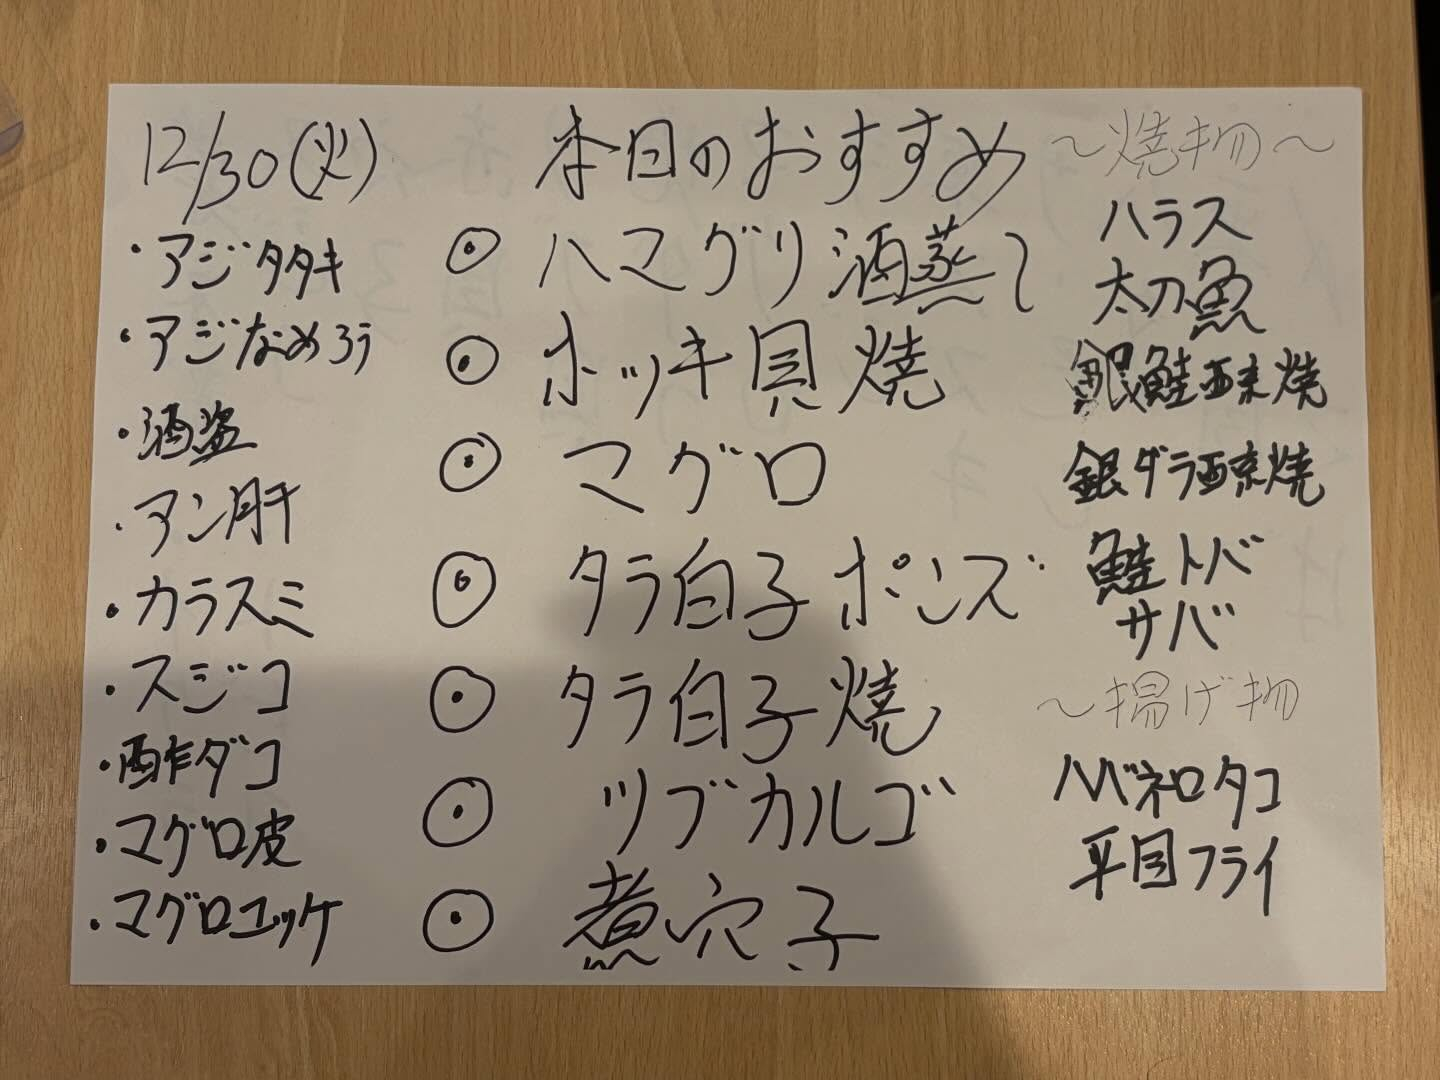 12/30(火)
・アジタタキ
・アジなめろう
・酒盗
・アン肝
・カラスミ
・スジコ
・酢ダコ
・マグロ皮
・マグロユッケ
本日のおすすめ
◉ハマグリ酒蒸し
◉ホッキ貝焼
◉マグロ
◉タラ白子ポンズ
◉タラ白子焼
◉ツブカルゴ
◉煮穴子
～焼物～
ハラス
太刀魚
銀鮭西京焼
銀ダラ西京焼
鮭トバ
サバ
～揚げ物
ハバネロタコ
平目フライ